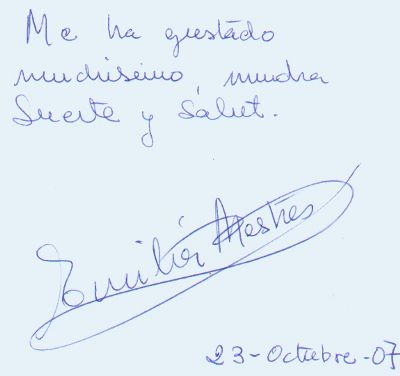 Me ha gustado
muchísimo, mucha
Suerte y Salut.
Emilia Mestres
23-Octubre-07